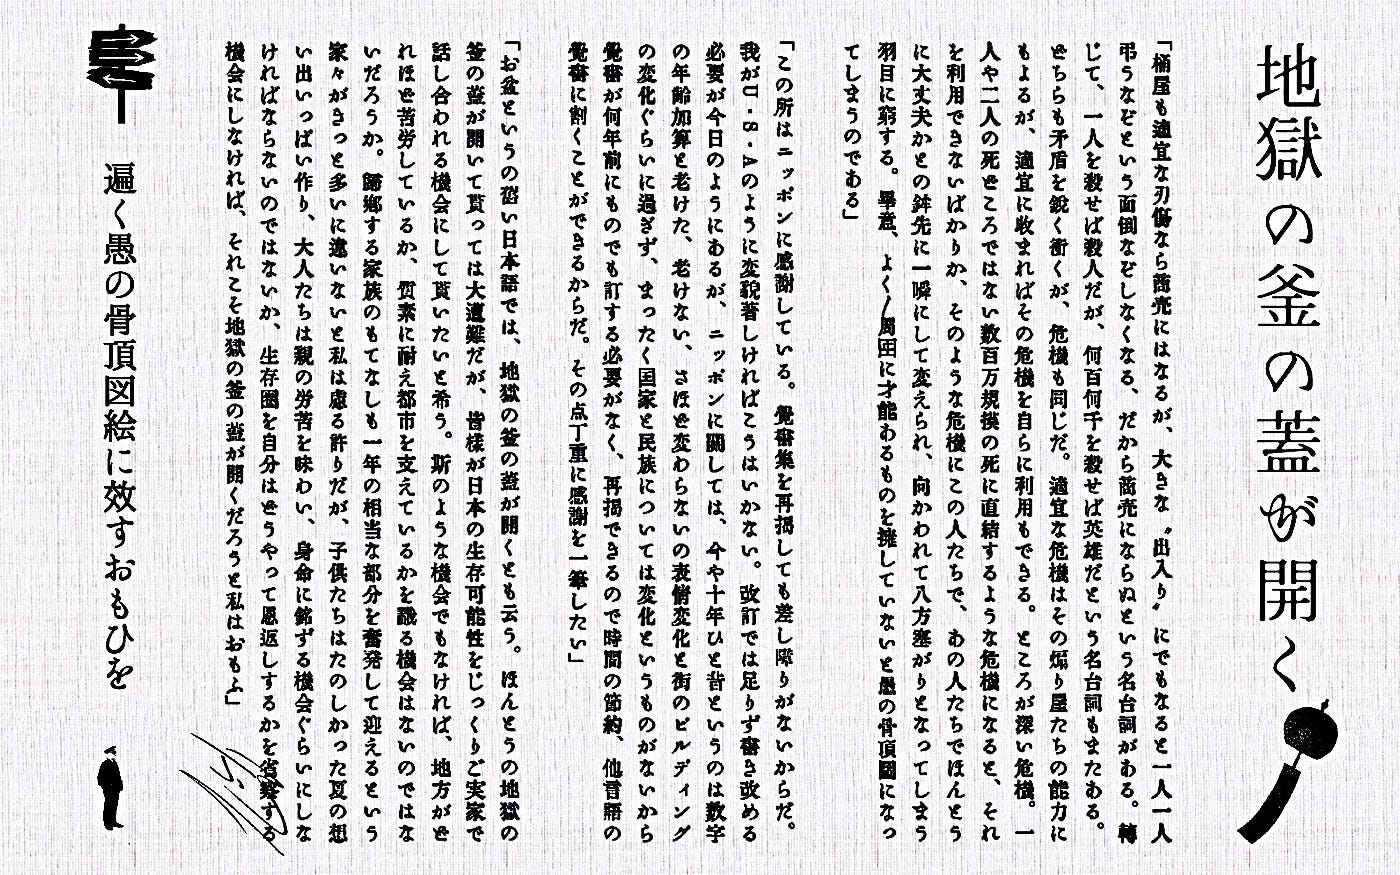 地獄の釜の蓋が開く
「桶屋も適宜な刃傷なら商売にはなるが、大きな〝出入り〟にでもなると一人一人
弔うなどという面倒などしなくなる、だから商売にならぬという名台詞がある。轉
じて、一人を殺せば殺人だが、何百何千を殺せば英雄だという名台詞もまたある。
どちらも矛盾を鋭く衝くが、危機も同じだ。適宜な危機はその煽り屋たちの能力に
もよるが、適宜に收まればその危機を自らに利用もできる。ところが深い危機。一
人や二人の死どころではない数百万規模の死に直結するような危機になると、それ
を利用できないばかりか、そのような危機にこの人たちで、あの人たちでほんとう
に大丈夫かとの鉾先に一瞬にして変えられ、向かわれて八方塞がりとなってしまう
羽目に窮する。畢意、よく〳周囲に才能あるものを擁していないと愚の骨頂圖になっ
てしまうのである」
「この所はニッポンに感謝している。覺書集を再掲しても差し障りがないからだ。
我がU・S・Aのように変貌著しければこうはいかない。改訂では足りず書き改める
必要が今日のようにあるが、ニッポンに關しては、今や十年ひと昔というのは数字
の年齢加算と老けた、老けない、さほど変わらないの表情変化と街のビルディング
の変化ぐらいに過ぎず、まったく国家と民族については変化というものがないから
覺書が何年前にものでも訂する必要がなく、再掲できるので時間の節約、他言語の
覺書に割くことができるからだ。その点丁重に感謝を一筆したい」
「お盆というの旧い日本語では、地獄の釜の蓋が開くとも云う。ほんとうの地獄の
釜の蓋が開いて貰っては大遭難だが、皆様が日本の生存可能性をじっくりご実家で
話し合われる機会にして貰いたいと希う。斯のような機会でもなければ、地方がど
れほど苦労しているか、質素に耐え都市を支えているかを識る機会はないのではな
いだろうか。歸郷する家族のもてなしも一年の相当な部分を奮発して迎えるという
家々がきっと多いに違いないと私は慮る許りだが、子供たちはたのしかった夏の想
い出いっぱい作り、大人たちは親の労苦を味わい、身命に銘ずる機会ぐらいにしな
ければならないのではないか、生存圏を自分はどうやって恩返しするかを省察する
機会にしなければ、それこそ地獄の釜の蓋が開くだろうと私はおもふ」
遍く愚の骨頂図絵に效すおもひを